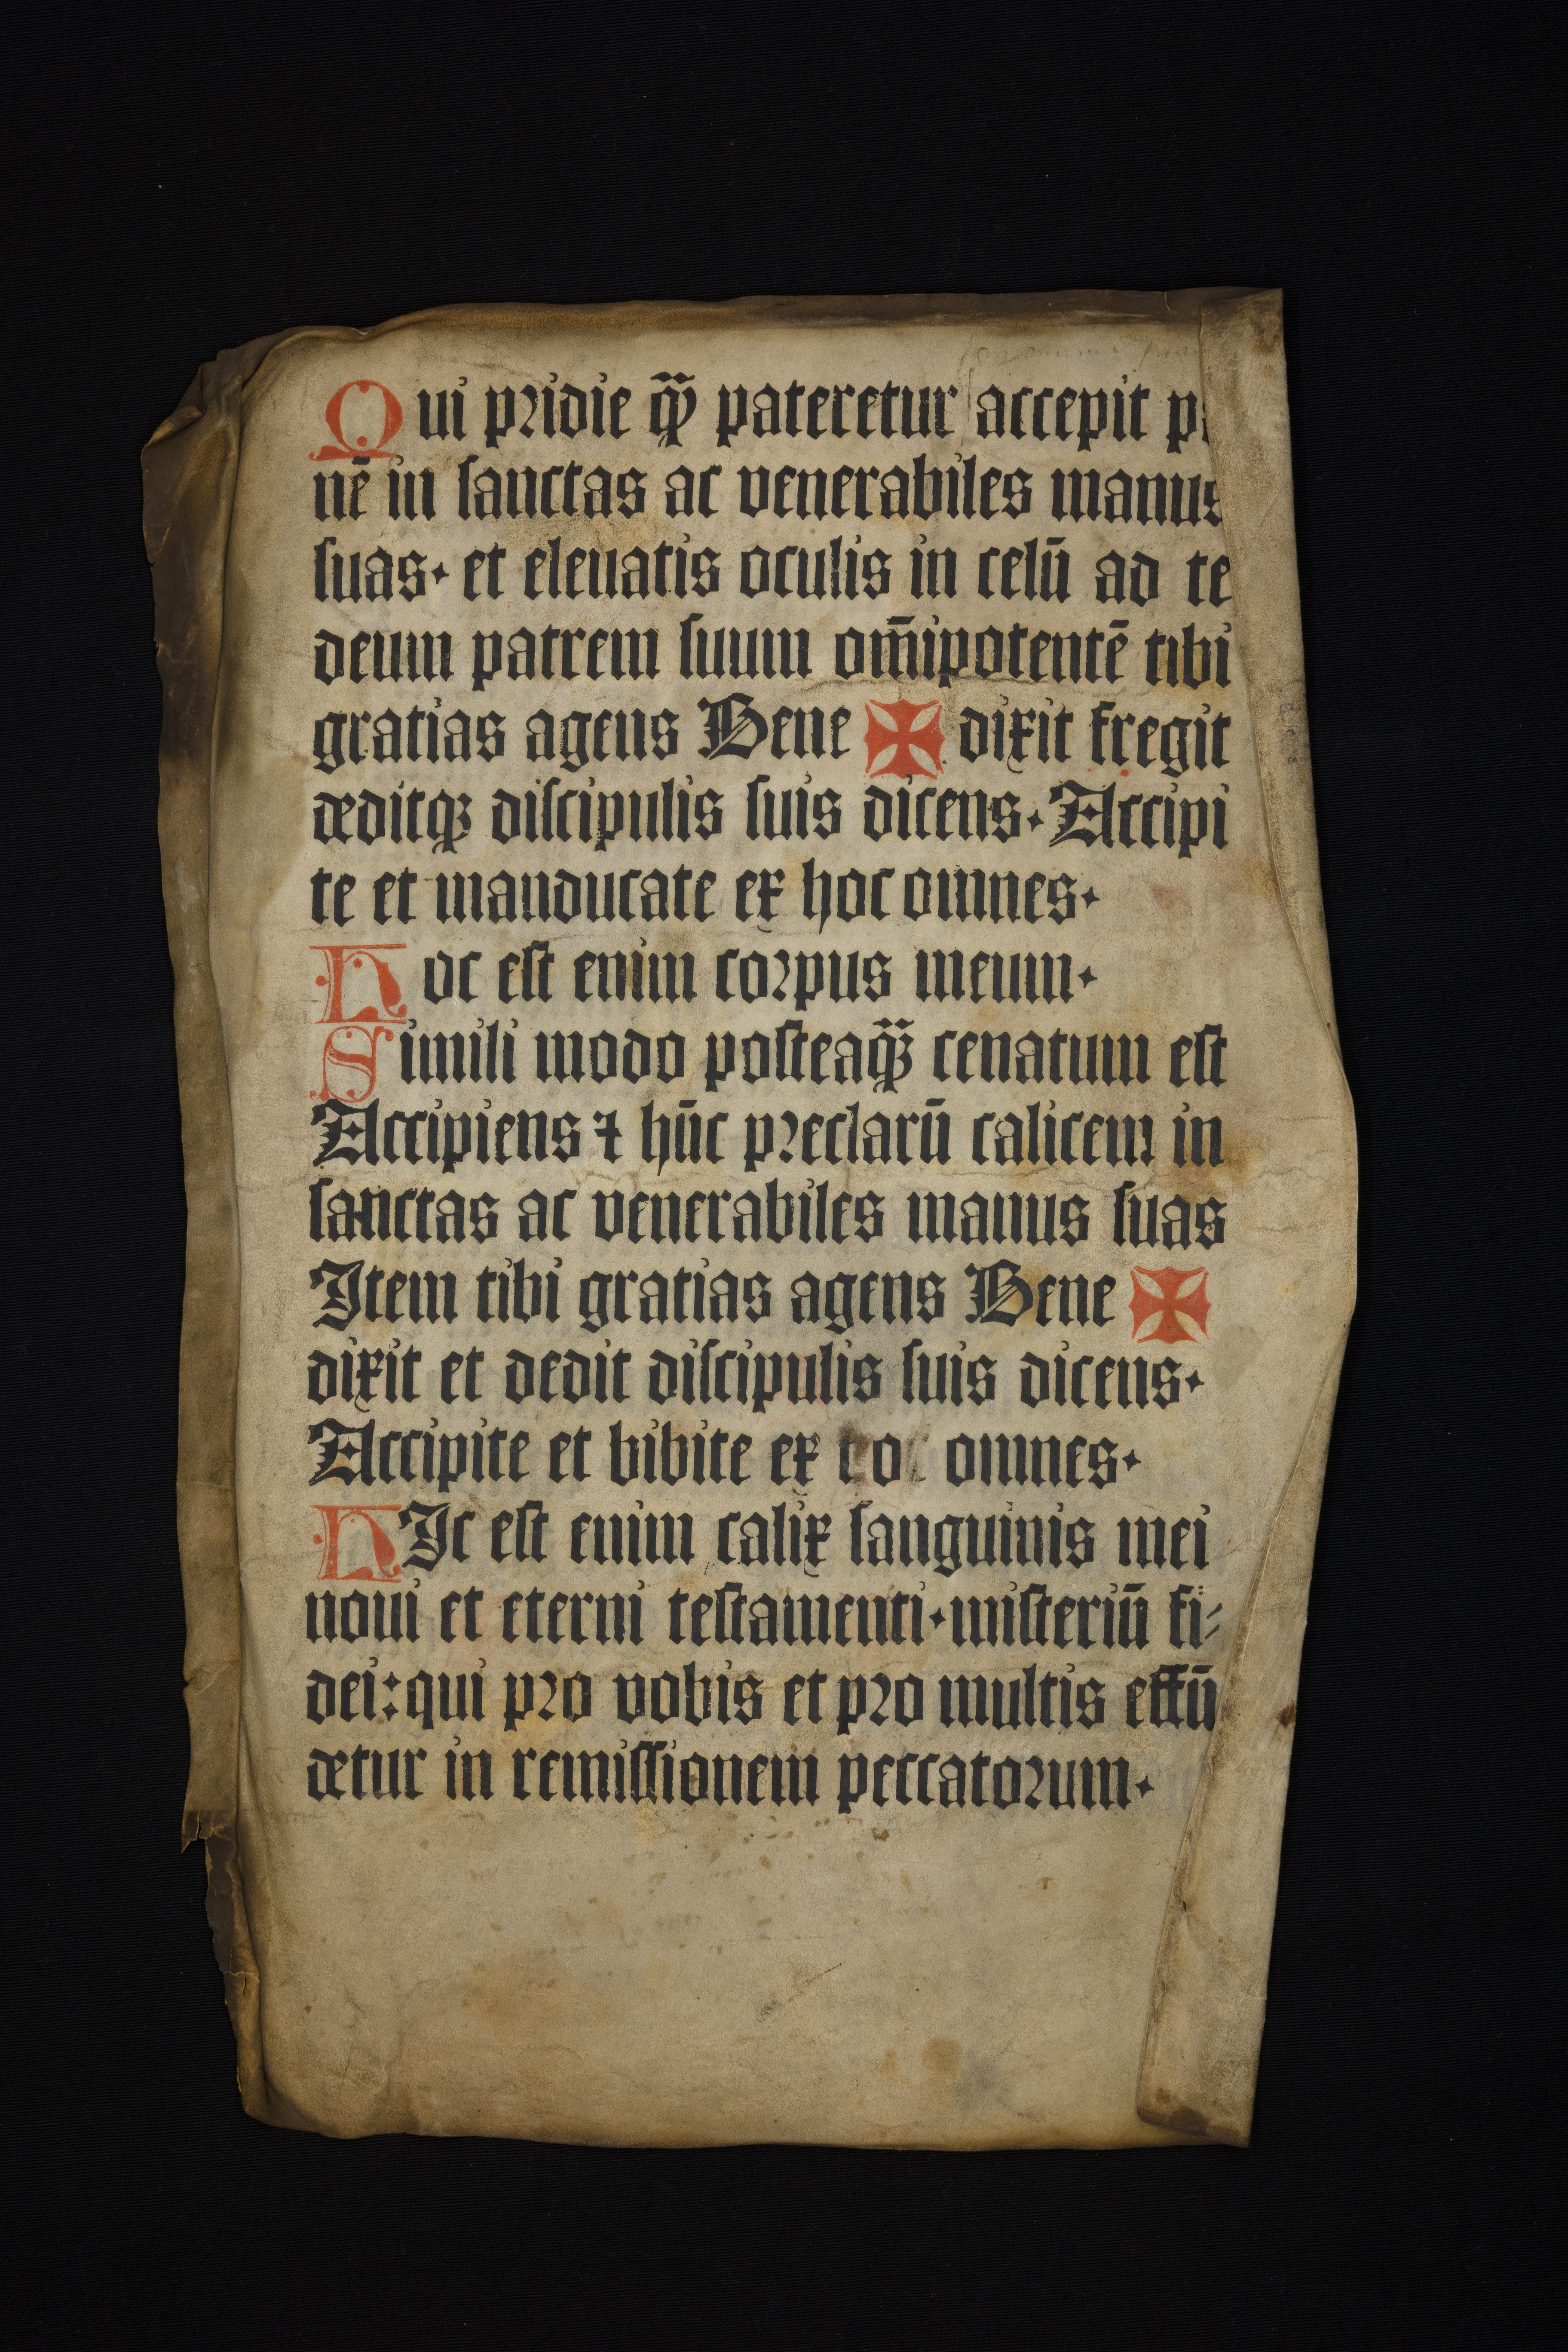 Qui pridie q̄ꝫ pateretur accepit p
nē in sanctas ac venerabiles manus
suas· et eleuatis oculis in celū ad te
deum patrem suum om̄ipotentē tibi
gratias agens Bene ✠ dixit fregit
deditqꝫ discipulis suis dicens· Accipi
te et manducate ex hoc omnes·
Hoc est enim corpus meum·
Simili modo posteaq̄ꝫ cenatum est
Accipiens ⁊ hūc preclarū calicem in
sanctas ac venerabiles manus suas
Item tibi gratias agens Bene ✠
dixit et dedit discipulis suis dicens·
Accipite et bibite ex omnes·
HIc est enim calix sanguinis mei
noui et eterni testamenti· misteriū fi⸗
dei: qui pro vobis et pro multis effū
detur in remissionem peccatorum·